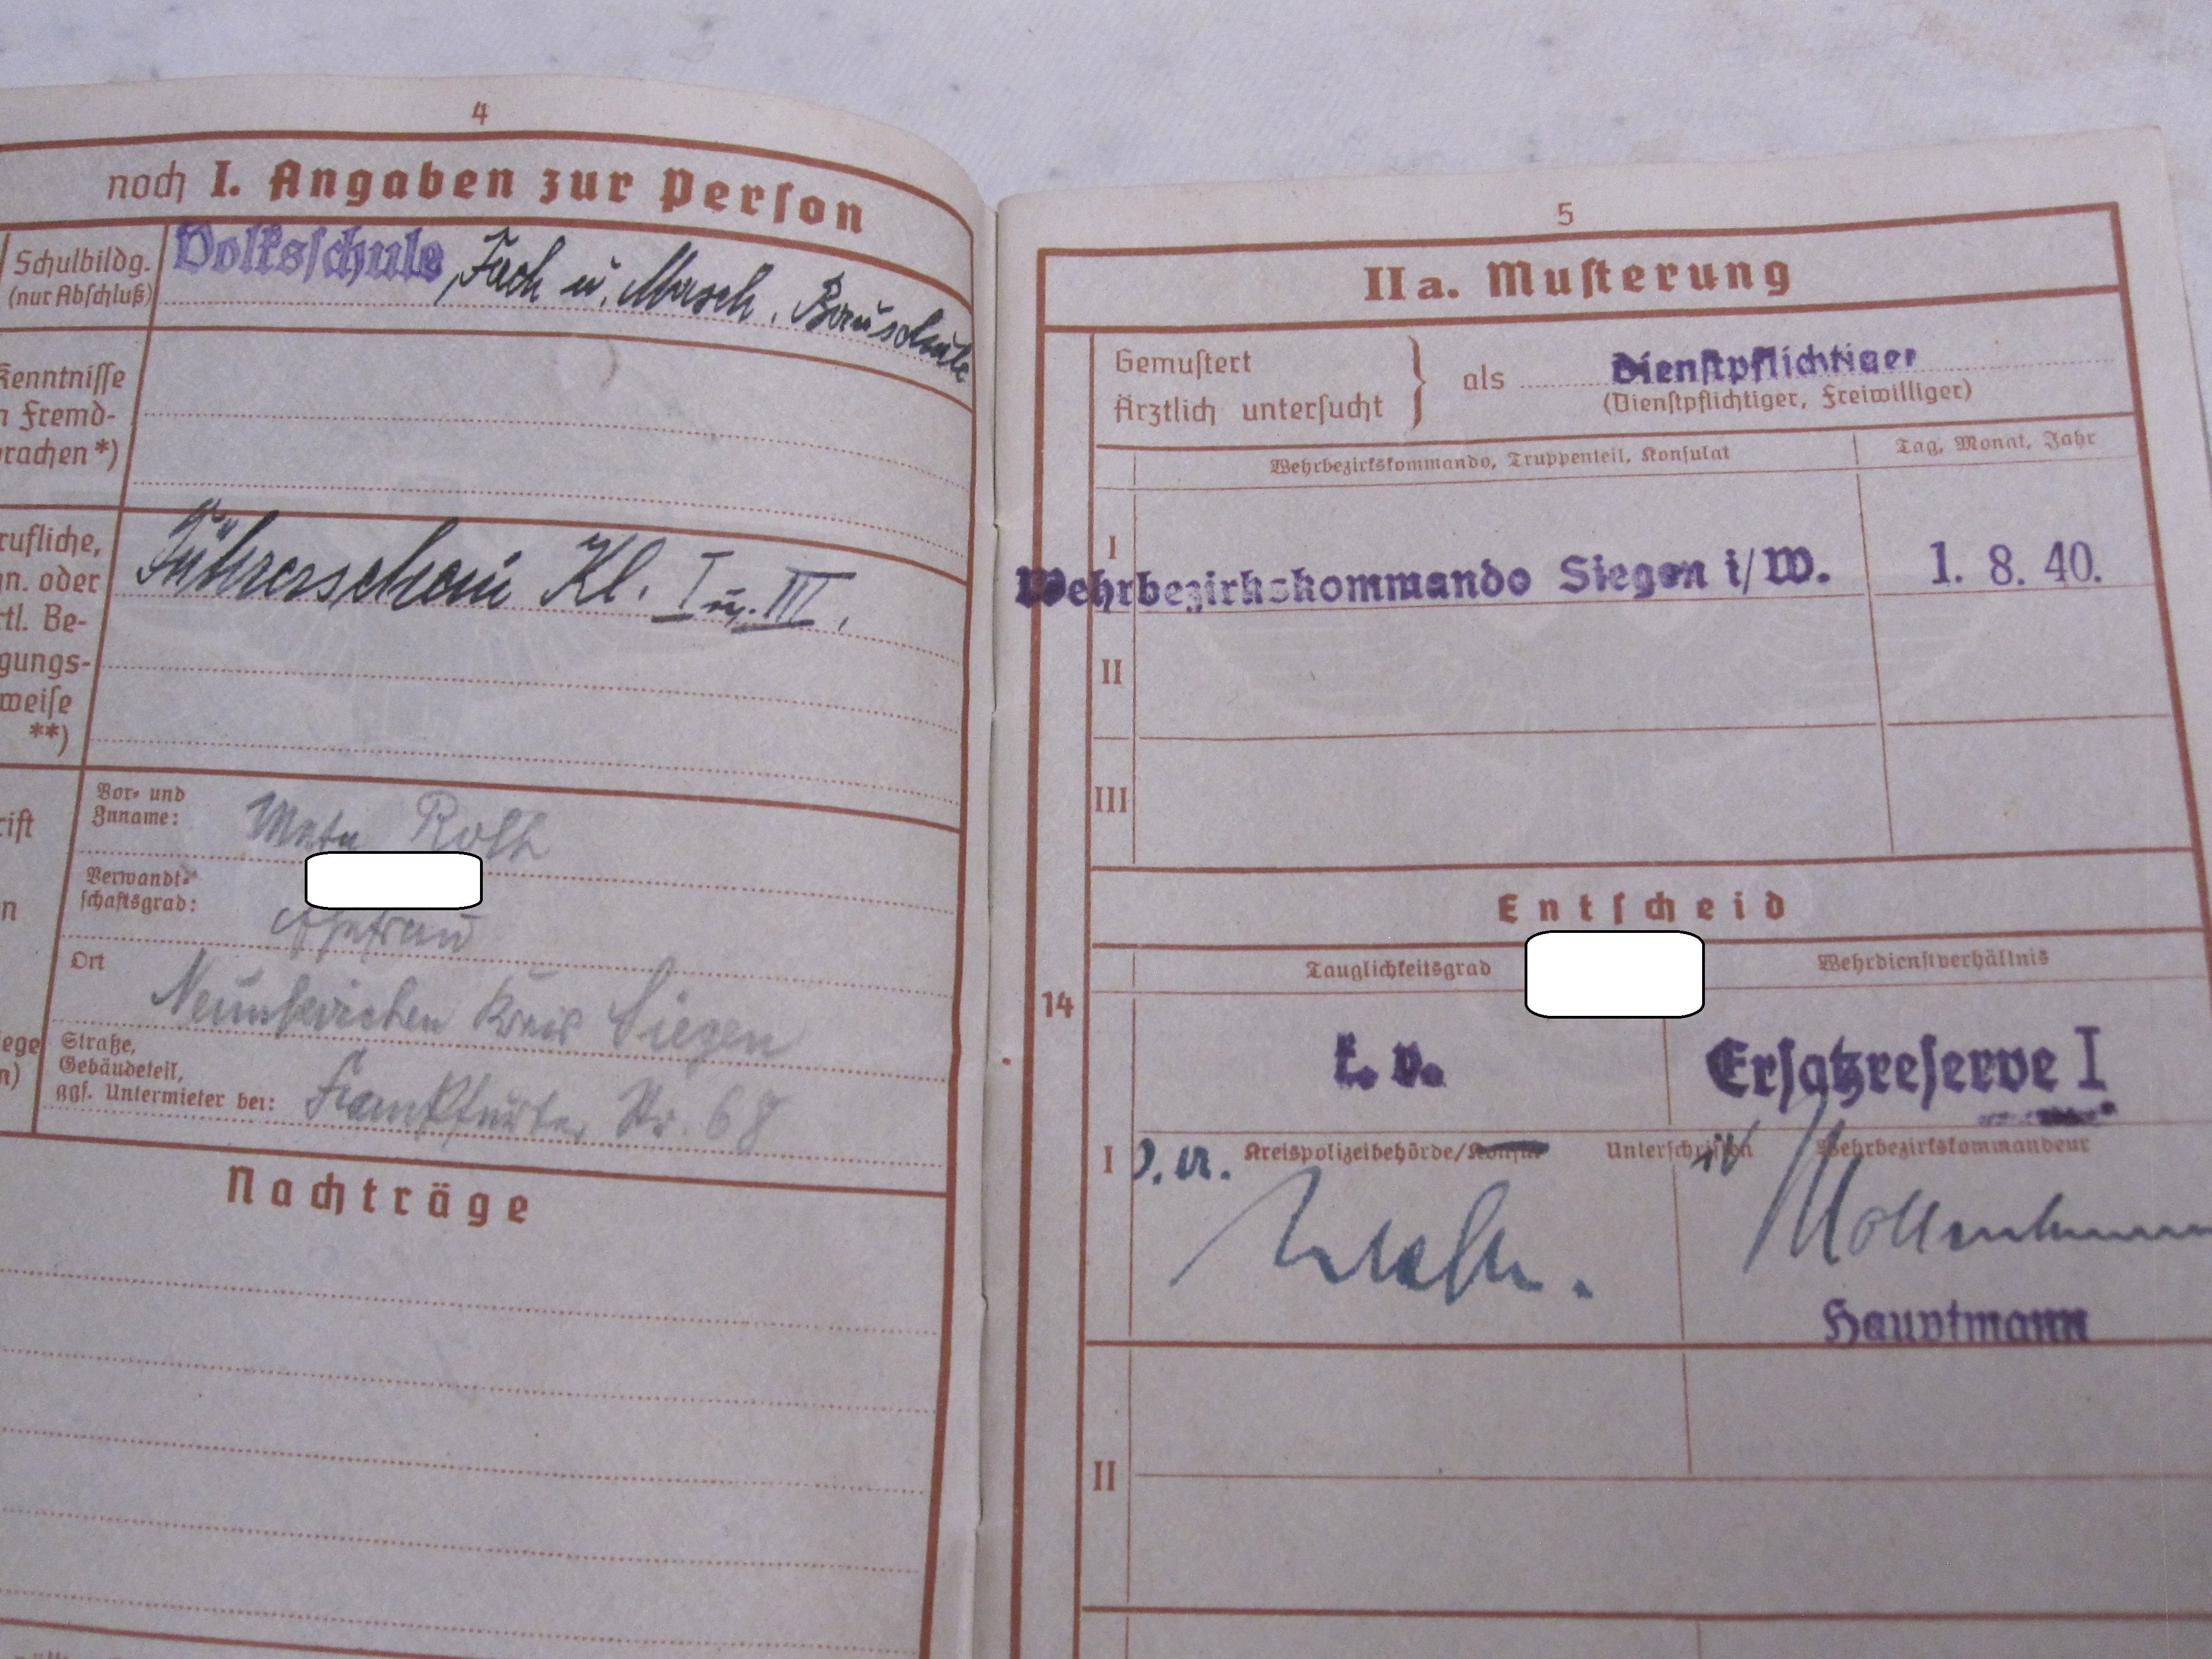 4
noch I. Angaben zur Person
Schulbildg. Volksschule, Fach u. Masch. Bauschule
(nur Abschluß)
Kenntnisse
Fremd-
rachen*)
rufliche, Führerschein Kl. I u. III.
n. oder
tl. Be-
gungs-
weise
**)
Vor- und
Zuname: Meta Roth
ift
Verwandt-
schaftsgrad: Ehefrau
n
Ort
Neunkirchen Kreis Siegen
ege
n)
Straße,
Gebäudeteil,
ggf. Untermieter bei: Frankfurter Str. 68
Nachträge
5
IIa. Musterung
Gemustert
Ärztlich untersucht
} als Dienstpflichtiger
(Dienstpflichtiger, Freiwilliger)
Wehrbezirkskommando, Truppenteil, Konsulat Tag, Monat, Jahr
I
Wehrbezirkskommando Siegen i/W. 1. 8. 40.
II
III
Entscheid
Tauglichkeitsgrad Wehrdienstverhältnis
14
k. v. Ersatzreserve I
I Kreispolizeibehörde/Konsul Unterschriften Wehrbezirkskommandeur
Hauptmann
II